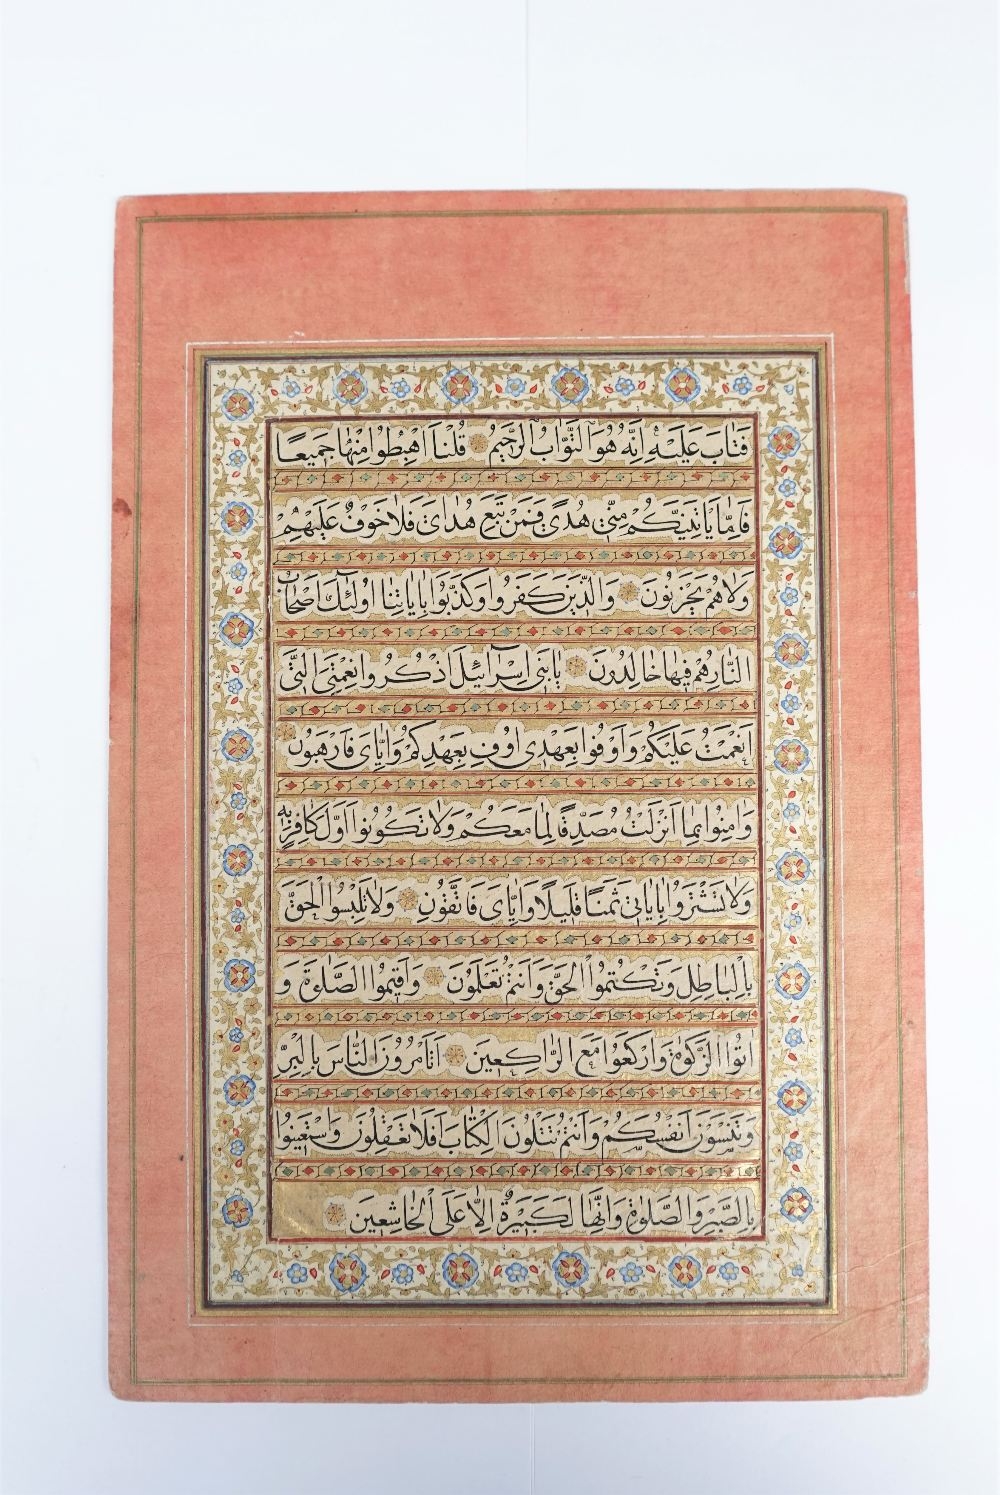 فَتَابَ عَلَيْهِ إِنَّهُ هُوَ التَّوَّابُ الرَّحِيمُ قُلْنَا اهْبِطُوا مِنْهَا جَمِيعًا
فَإِمَّا يَأْتِيَنَّكُمْ مِنِّي هُدًى فَمَنْ تَبِعَ هُدَايَ فَلَا خَوْفٌ عَلَيْهِمْ
وَلَا هُمْ يَحْزَنُونَ وَالَّذِينَ كَفَرُوا وَكَذَّبُوا بِآيَاتِنَا أُولَئِكَ أَصْحَابُ
النَّارِ هُمْ فِيهَا خَالِدُونَ يَا بَنِي إِسْرَائِيلَ اذْكُرُوا نِعْمَتِيَ الَّتِي
أَنْعَمْتُ عَلَيْكُمْ وَأَوْفُوا بِعَهْدِي أُوفِ بِعَهْدِكُمْ وَإِيَّايَ فَارْهَبُونِ
وَآمِنُوا بِمَا أَنْزَلْتُ مُصَدِّقًا لِمَا مَعَكُمْ وَلَا تَكُونُوا أَوَّلَ كَافِرٍ بِهِ
وَلَا تَشْتَرُوا بِآيَاتِي ثَمَنًا قَلِيلًا وَإِيَّايَ فَاتَّقُونِ وَلَا تَلْبِسُوا الْحَقَّ
بِالْبَاطِلِ وَتَكْتُمُوا الْحَقَّ وَأَنْتُمْ تَعْلَمُونَ وَأَقِيمُوا الصَّلَاةَ وَ
آتُوا الزَّكَوةَ وَارْكَعُوا مَعَ الرَّاكِعِينَ أَتَأْمُرُونَ النَّاسَ بِالْبِرِّ
وَتَنْسَوْنَ أَنْفُسَكُمْ وَأَنْتُمْ تَتْلُونَ الْكِتَابَ أَفَلَا تَعْقِلُونَ وَاسْتَعِينُوا
بِالصَّبْرِ وَالصَّلَوةِ وَإِنَّهَا لَكَبِيرَةٌ إِلَّا عَلَى الْخَاشِعِينَ